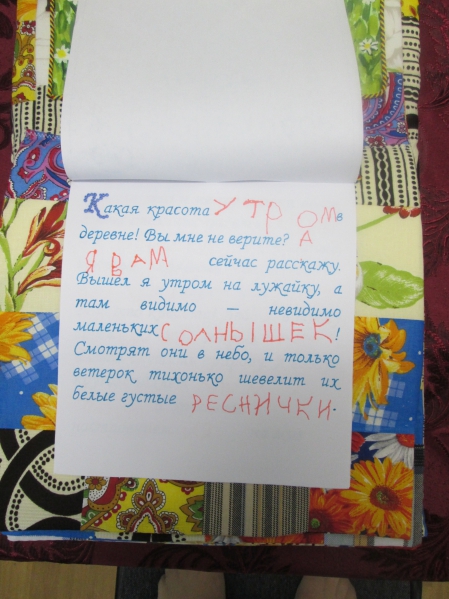 Какая красота УТРОМ в
деревне! Вы мне не верите? А
Я ВАМ сейчас расскажу.
Вышел я утром на лужайку, а
там видимо – невидимо
маленьких СОЛНЫШЕК!
Смотрят они в небо, и только
ветерок тихонько шевелит их
белые густые РЕСНИЧКИ.